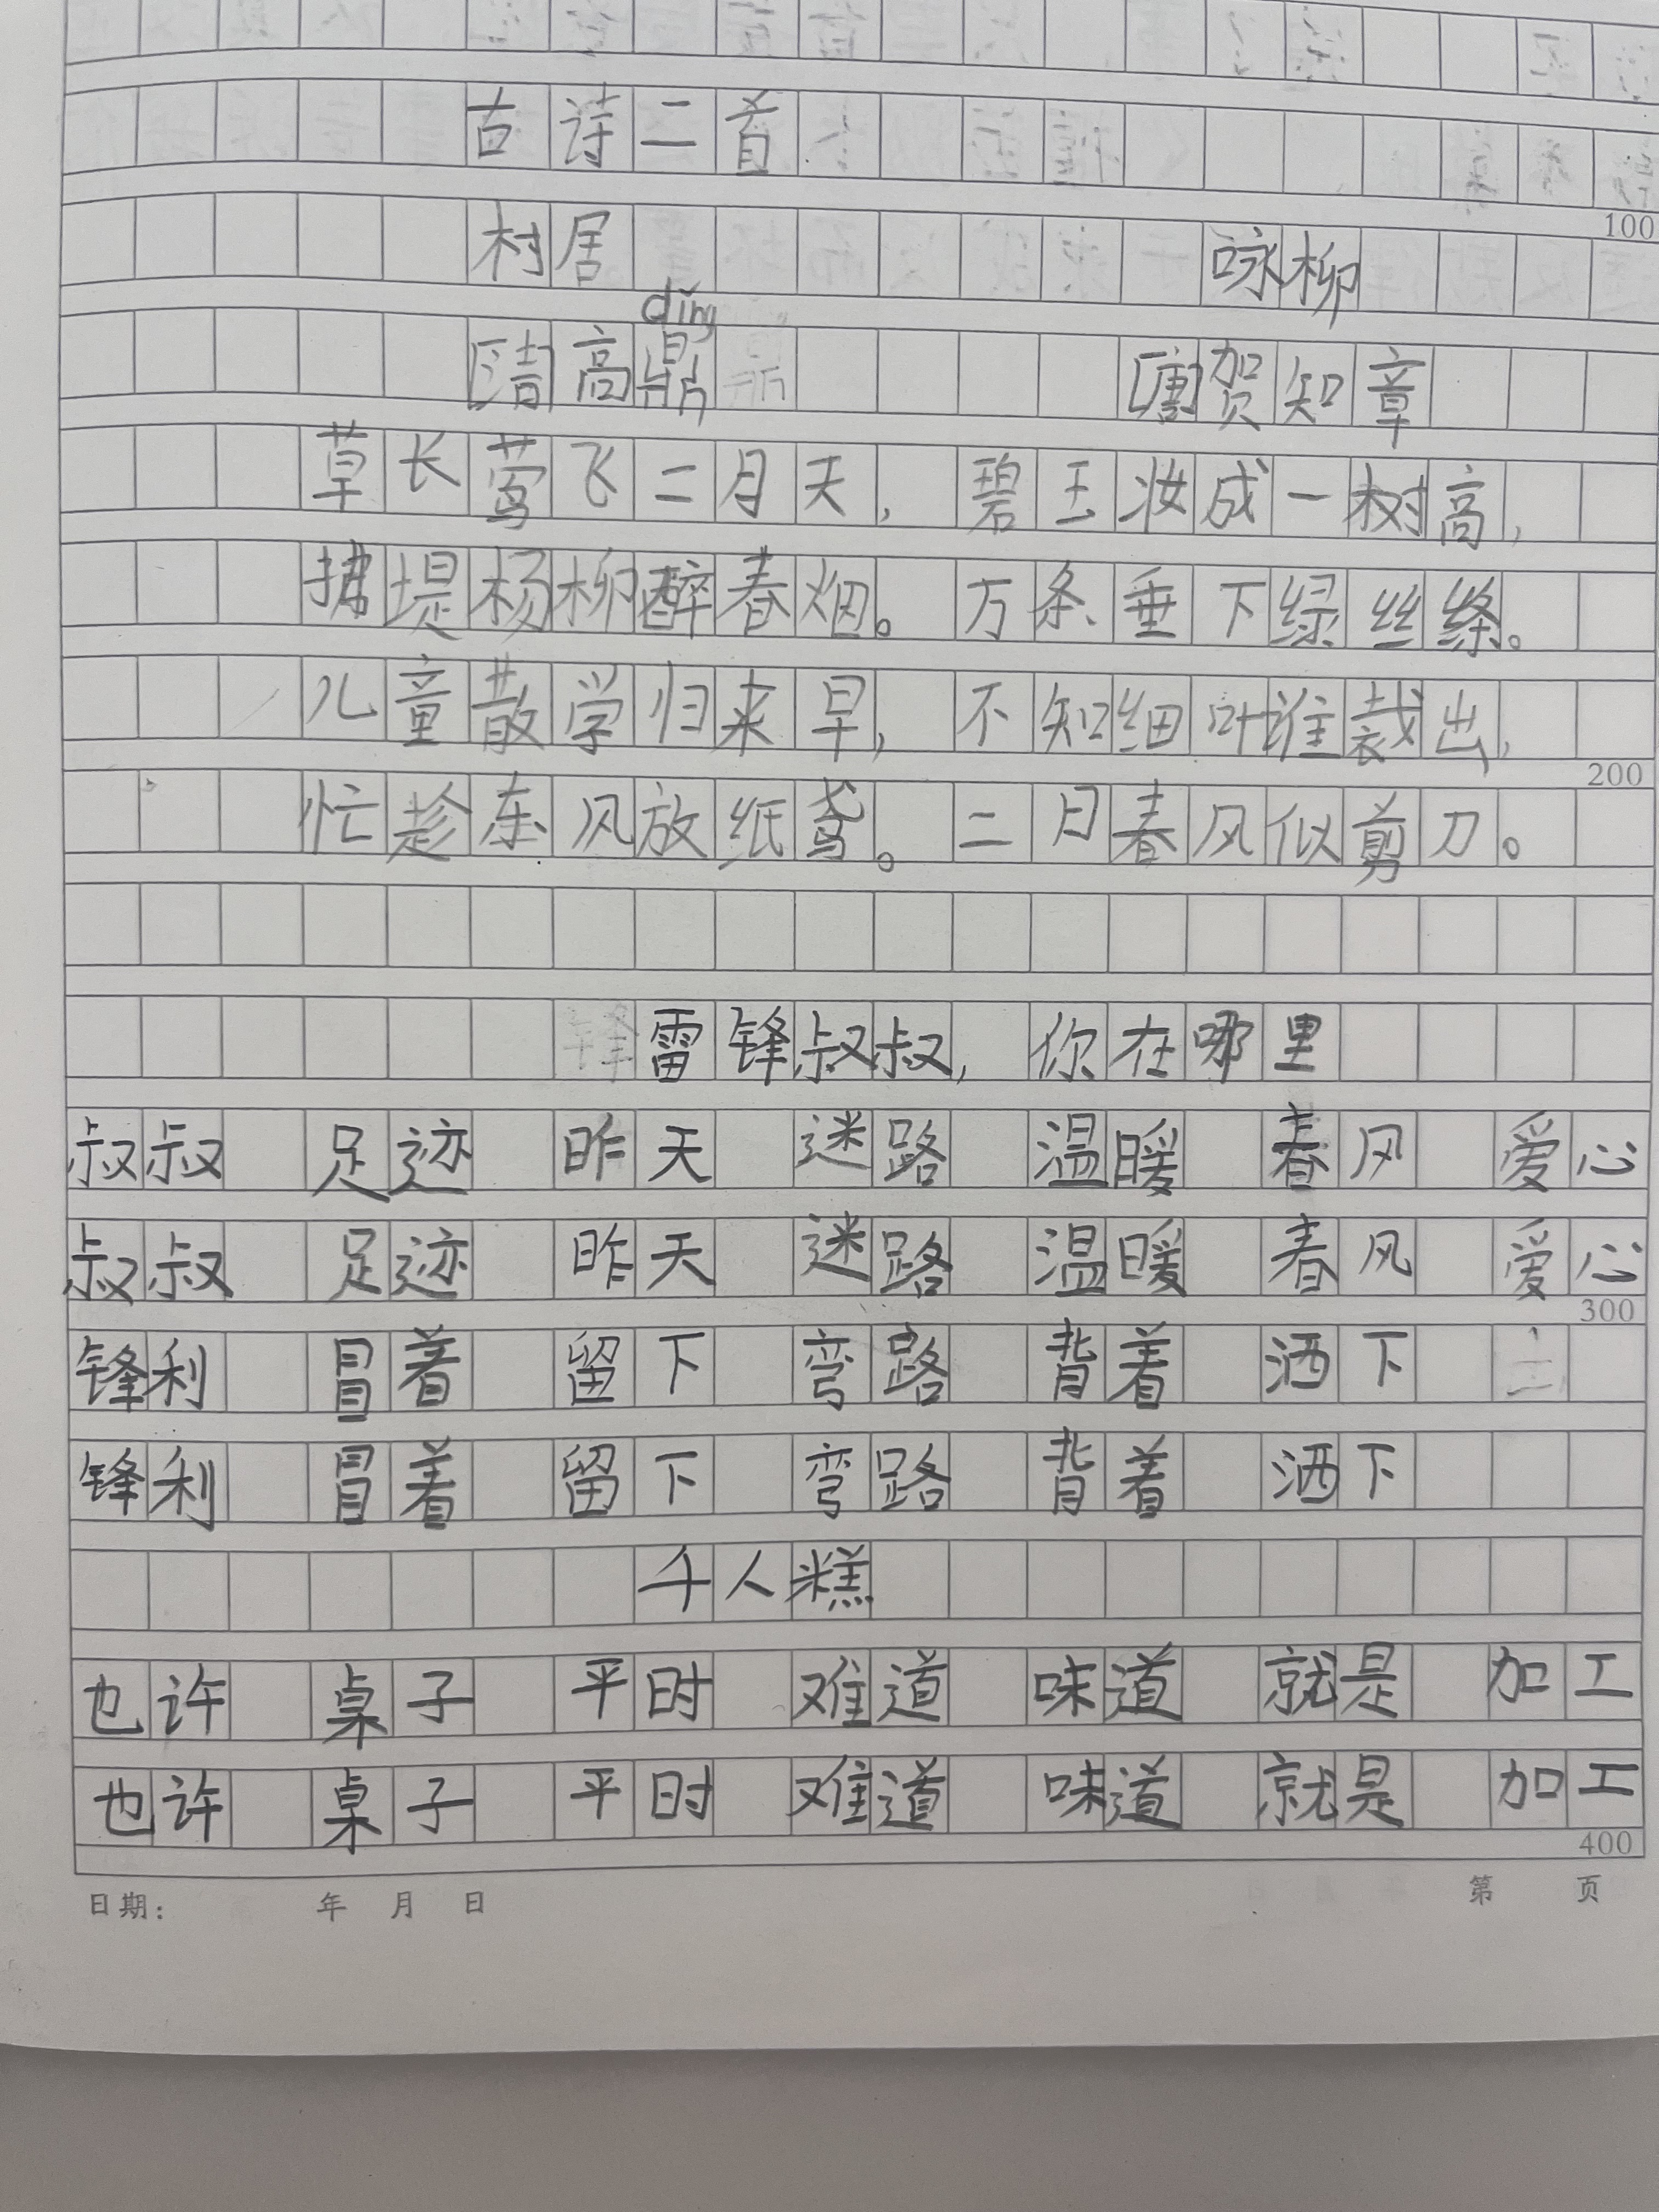 古诗二首
100
村居 咏柳
dǐng
[清]高鼎 [唐]贺知章
草长莺飞二月天，碧玉妆成一树高，
拂堤杨柳醉春烟。万条垂下绿丝绦。
儿童散学归来早，不知细叶谁裁出，
200
忙趁东风放纸鸢。二月春风似剪刀。
雷锋叔叔，你在哪里
叔叔 足迹 昨天 迷路 温暖 春风 爱心
叔叔 足迹 昨天 迷路 温暖 春风 爱心
300
锋利 冒着 留下 弯路 背着 洒下
锋利 冒着 留下 弯路 背着 洒下
千人糕
也许 桌子 平时 难道 味道 就是 加工
也许 桌子 平时 难道 味道 就是 加工
400
日期： 年 月 日 第 页